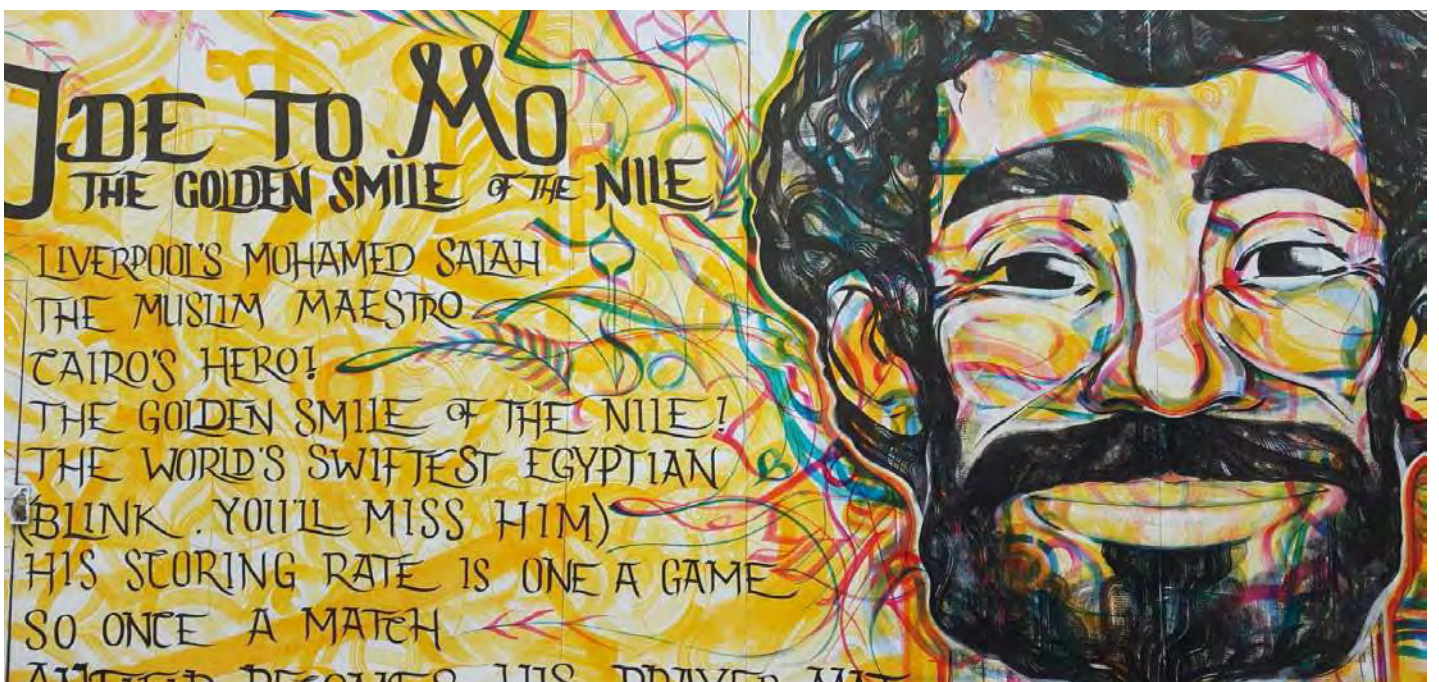 ODE TO MO
THE GOLDEN SMILE OF THE NILE
LIVERPOOL'S MOHAMED SALAH
THE MUSLIM MAESTRO
CAIRO'S HERO!
THE GOLDEN SMILE OF THE NILE!
THE WORLD'S SWIFTEST EGYPTIAN
(BLINK. YOU'LL MISS HIM)
HIS SCORING RATE IS ONE A GAME
SO ONCE A MATCH
ANFIELD BECOMES HIS PRAYER MAT